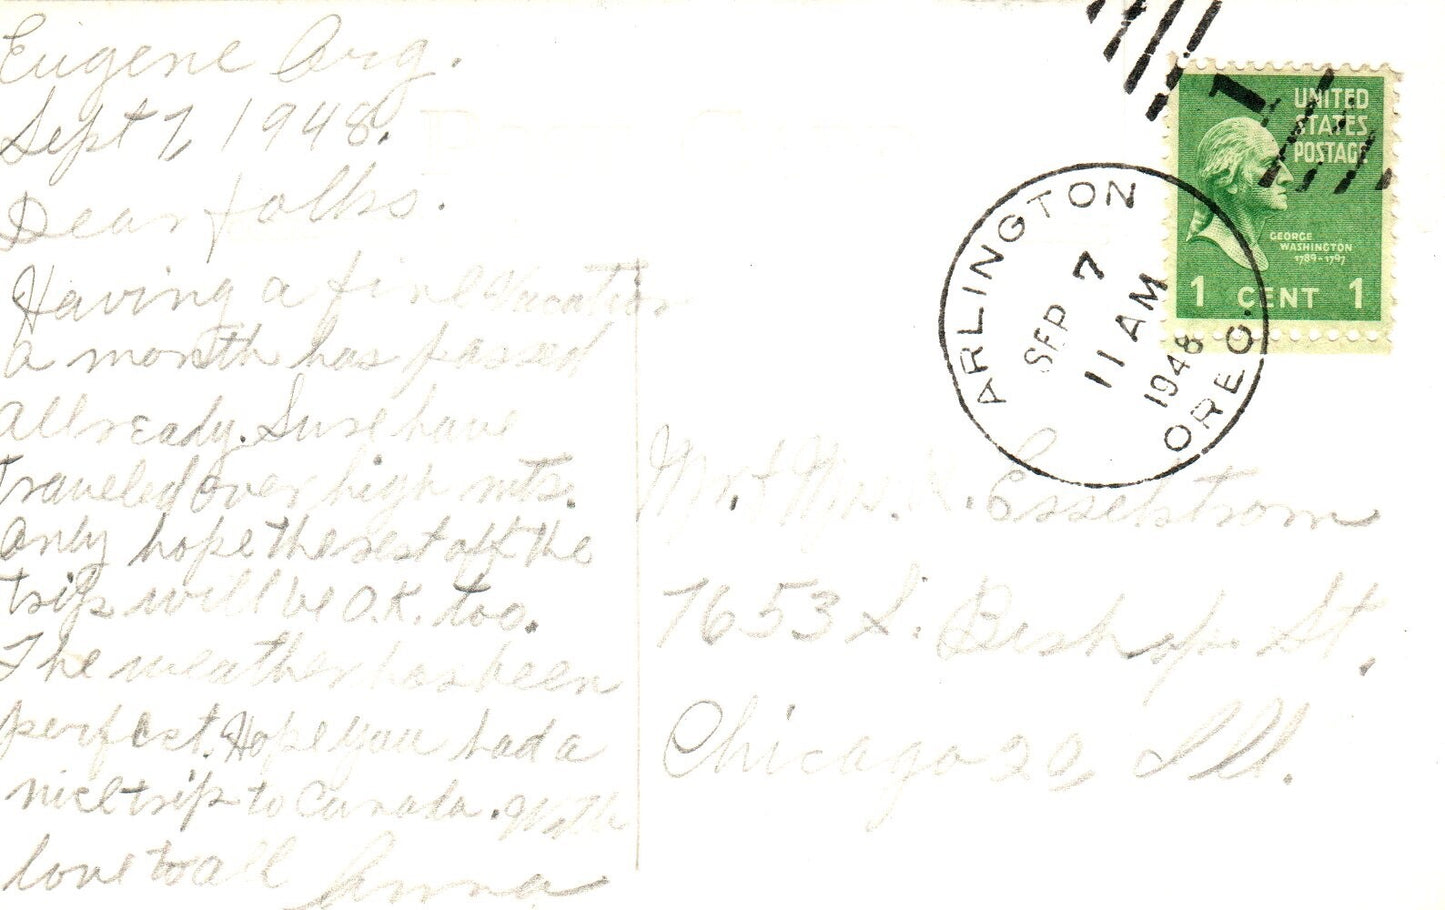 Eugene Org.
Sept 7, 1948.
Dear folks.
Having a fine Vacation
a month has passed
allready. Sure have
traveled over high mts.
Only hope the rest off the
trip will be O.K. too.
The weather has been
perfect. Hope you had a
nice trip to Canada. With
love to all Anna
ARLINGTON
SEP 7
11 AM
1948
OREG.
UNITED
STATES
POSTAGE
GEORGE
WASHINGTON
1789-1797
1 CENT 1
Mr. & Mrs. K. Esselstrom
7653 S. Bishop St.
Chicago 20, Ill.